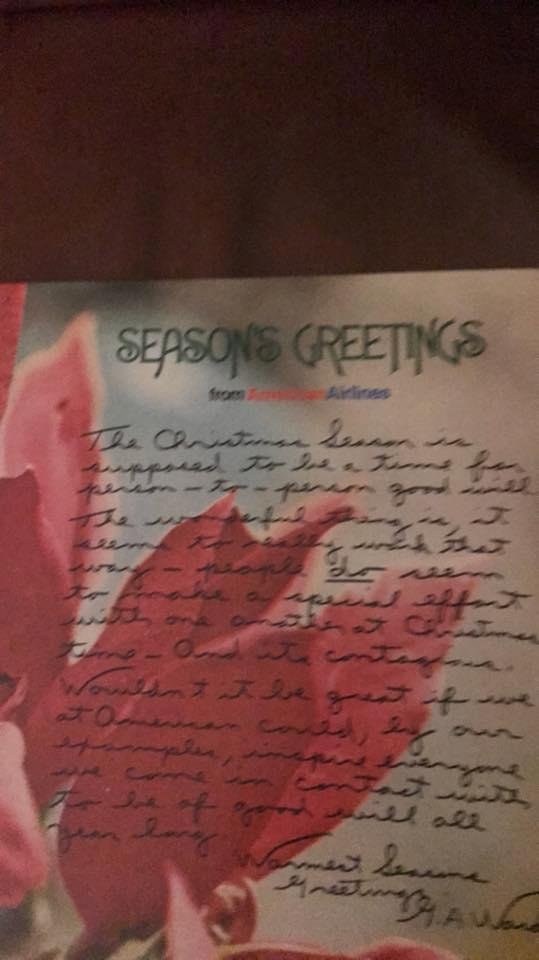 SEASON'S GREETINGS
from American Airlines
The Christmas Season is
supposed to be a time for
person-to-person good will
The wonderful thing is, it
seems to really work that
way - people do seem
to make a special effort
with one another at Christmas
time - And its contagious.
Wouldn't it be great if we
at American could, by our
examples, inspire everyone
we come in contact with
to be of good will all
year long
Warmest Seasons
Greetings
G. A Ward